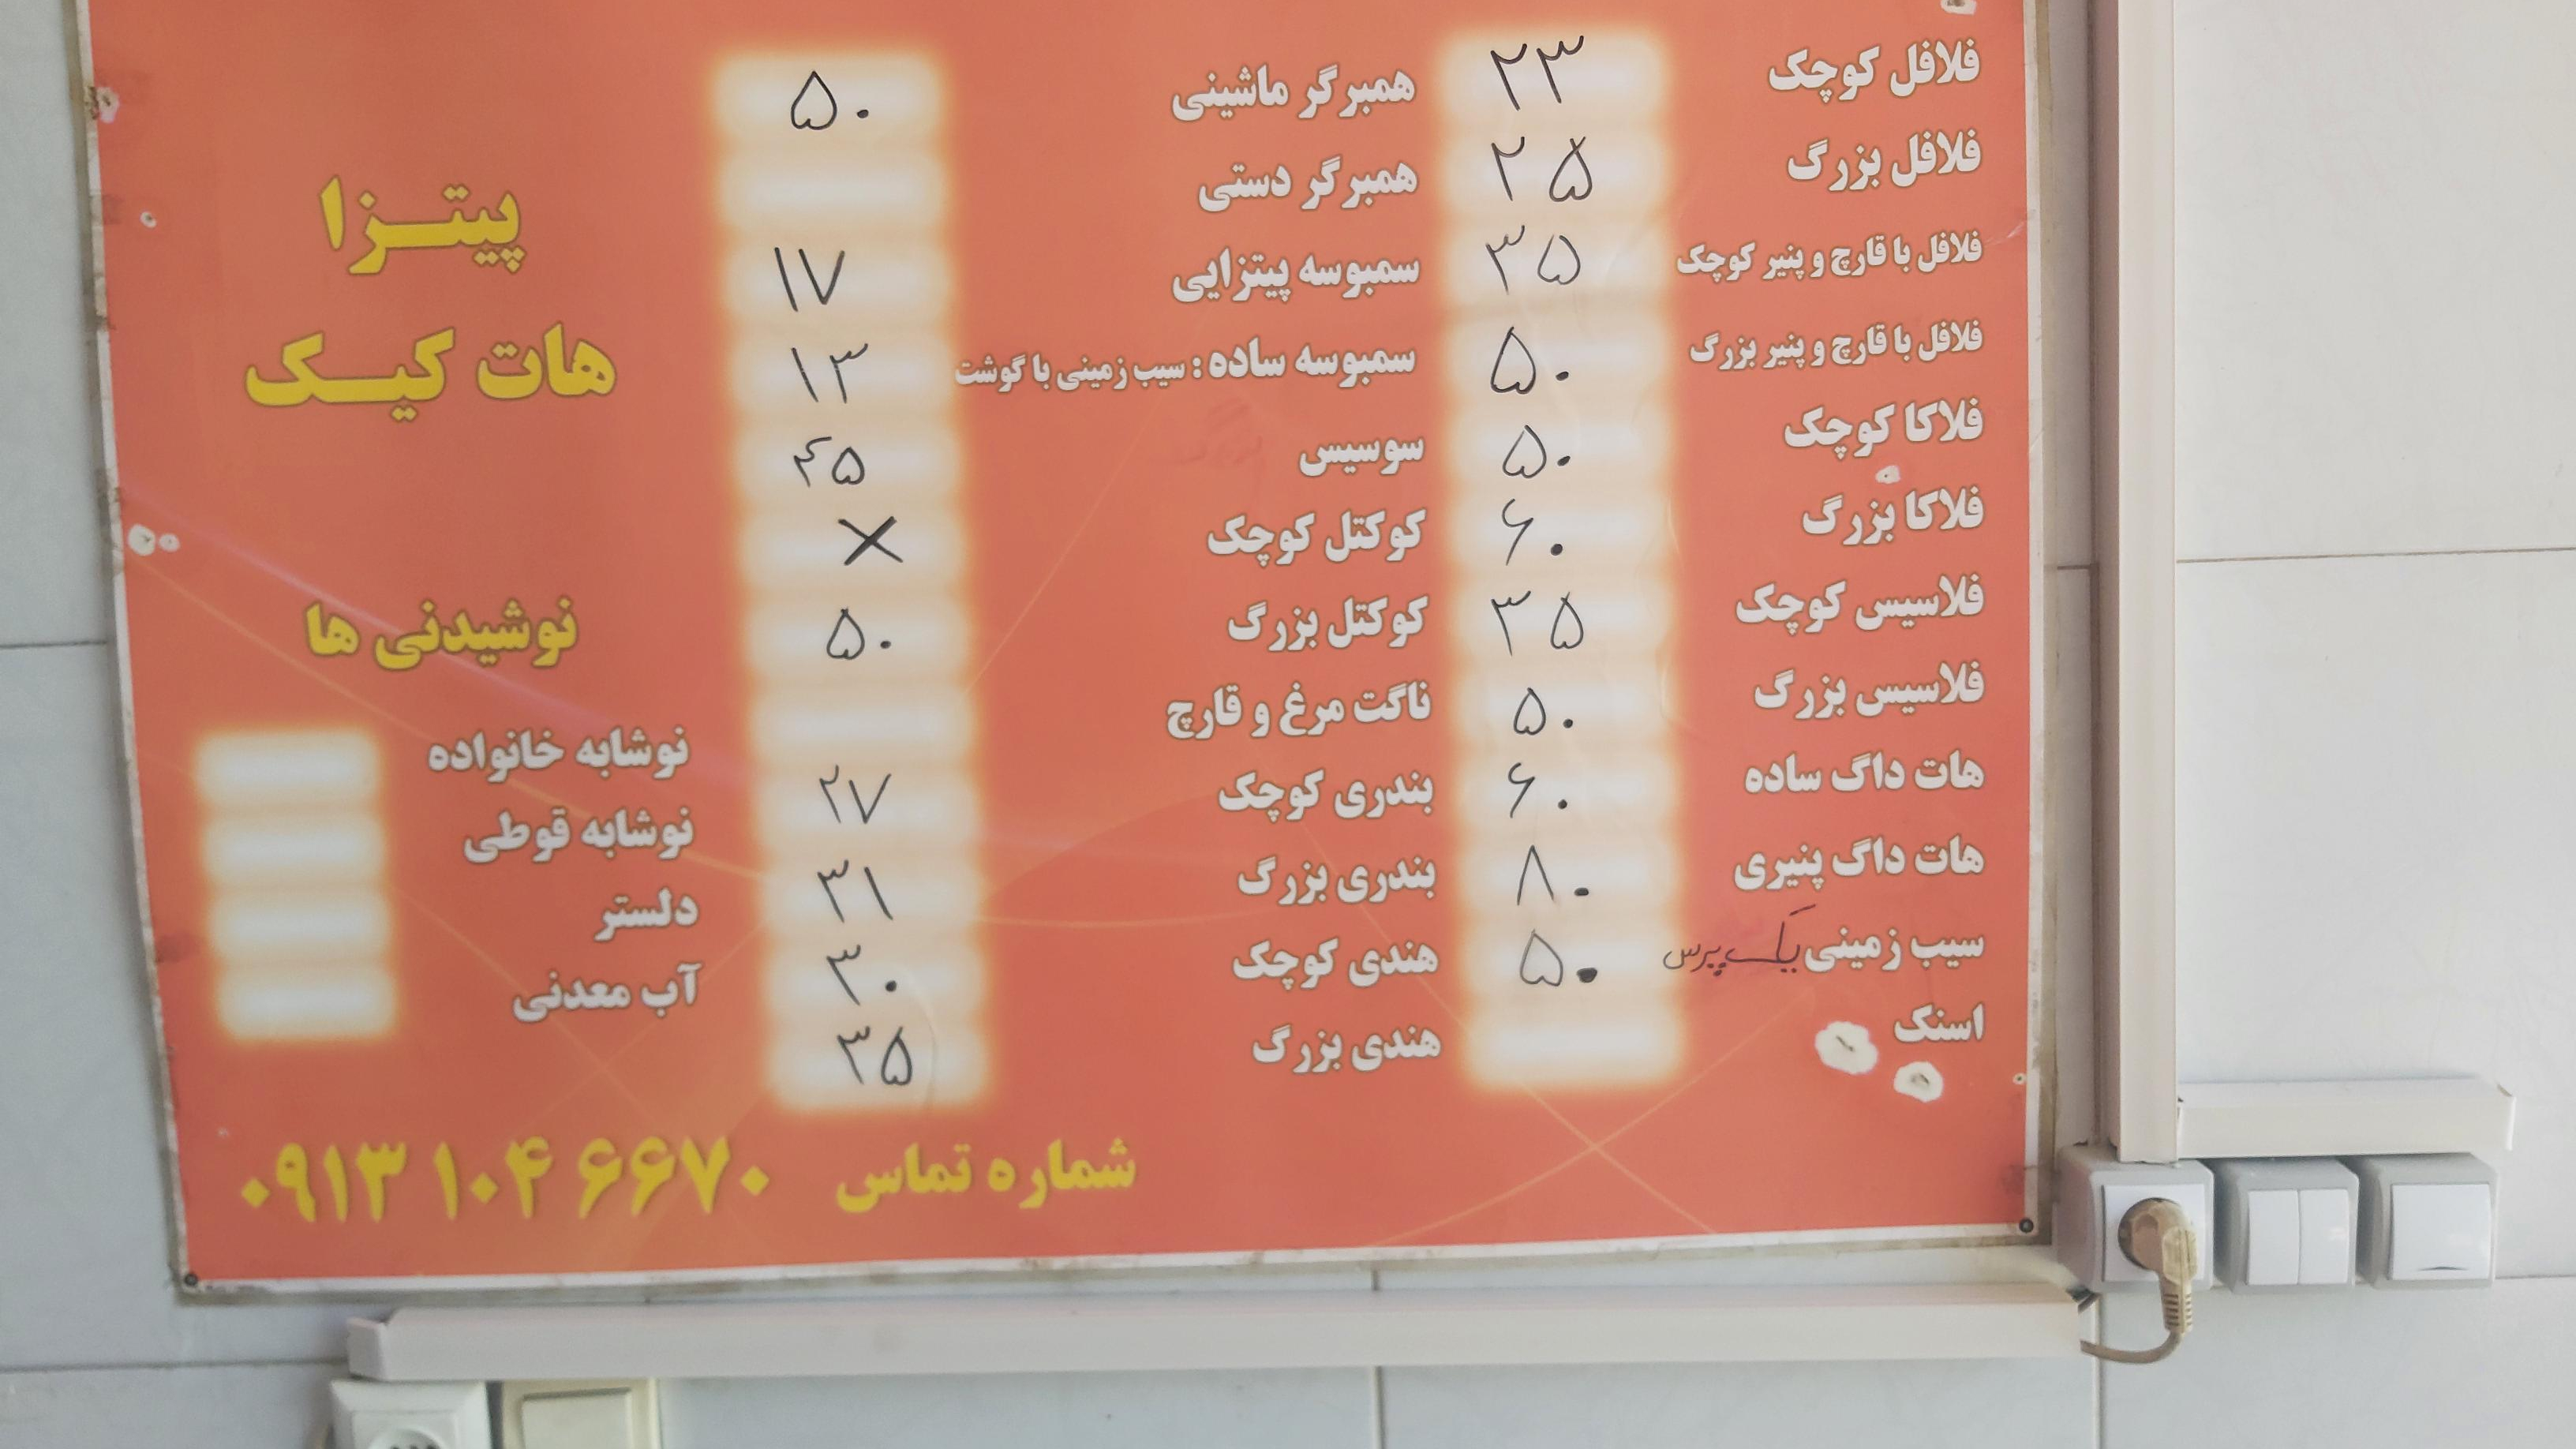 فلافل کوچک ۲۳
فلافل بزرگ ۲۵
فلافل با قارچ و پنیر کوچک ۳۵
فلافل با قارچ و پنیر بزرگ ۵۰
فلاکا کوچک ۵۰
فلاکا بزرگ ۶۰
فلاسیس کوچک ۳۵
فلاسیس بزرگ ۵۰
هات داگ ساده ۶۰
هات داگ پنیری ۸۰
سیب زمینی یک پرس ۵۰
اسنک
همبرگر ماشینی ۵۰
همبرگر دستی
سمبوسه پیتزایی ۱۷
سمبوسه ساده : سیب زمینی با گوشت ۱۳
سوسیس ۴۵
کوکتل کوچک ×
کوکتل بزرگ ۵۰
ناگت مرغ و قارچ
بندری کوچک ۲۷
بندری بزرگ ۳۱
هندی کوچک ۳۰
هندی بزرگ ۳۵
پیتزا
هات کیک
نوشیدنی ها
نوشابه خانواده
نوشابه قوطی
دلستر
آب معدنی
شماره تماس ۰۹۱۳ ۱۰۴ ۶۶۷۰